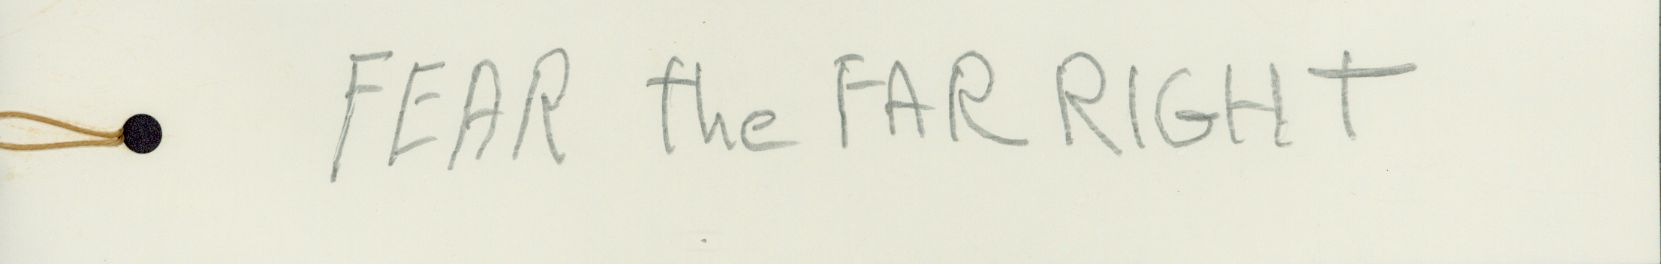 FEAR the FAR RIGHT